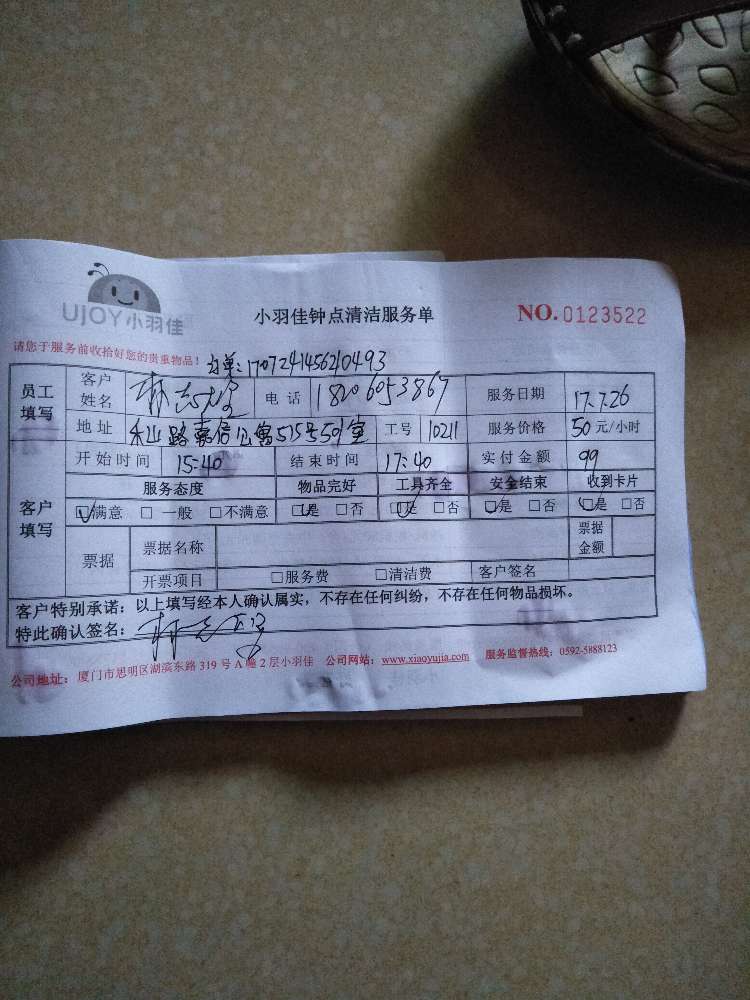 UJOY小羽佳
小羽佳钟点清洁服务单
NO.0123522
请您于服务前收拾好您的贵重物品！
170724145640493
员工填写 客户姓名 林志 电话 18206053867 服务日期 17.7.26
地址 禾山路嘉信公寓515号501室 工号 10211 服务价格 50元/小时
开始时间 15:40 结束时间 17:40 实付金额 99
客户填写 服务态度 物品完好 工具齐全 安全结束 收到卡片
☑满意 □一般 □不满意 ☑是 □否 ☑是 □否 ☑是 □否 ☑是 □否
票据 票据名称 票据金额
开票项目 □服务费 □清洁费 客户签名
客户特别承诺：以上填写经本人确认属实，不存在任何纠纷，不存在任何物品损坏。
特此确认签名：林志
公司地址：厦门市思明区湖滨东路 319 号 A 幢 2 层小羽佳 公司网站：www.xiaoyujia.com 服务监督热线：0592-5888123